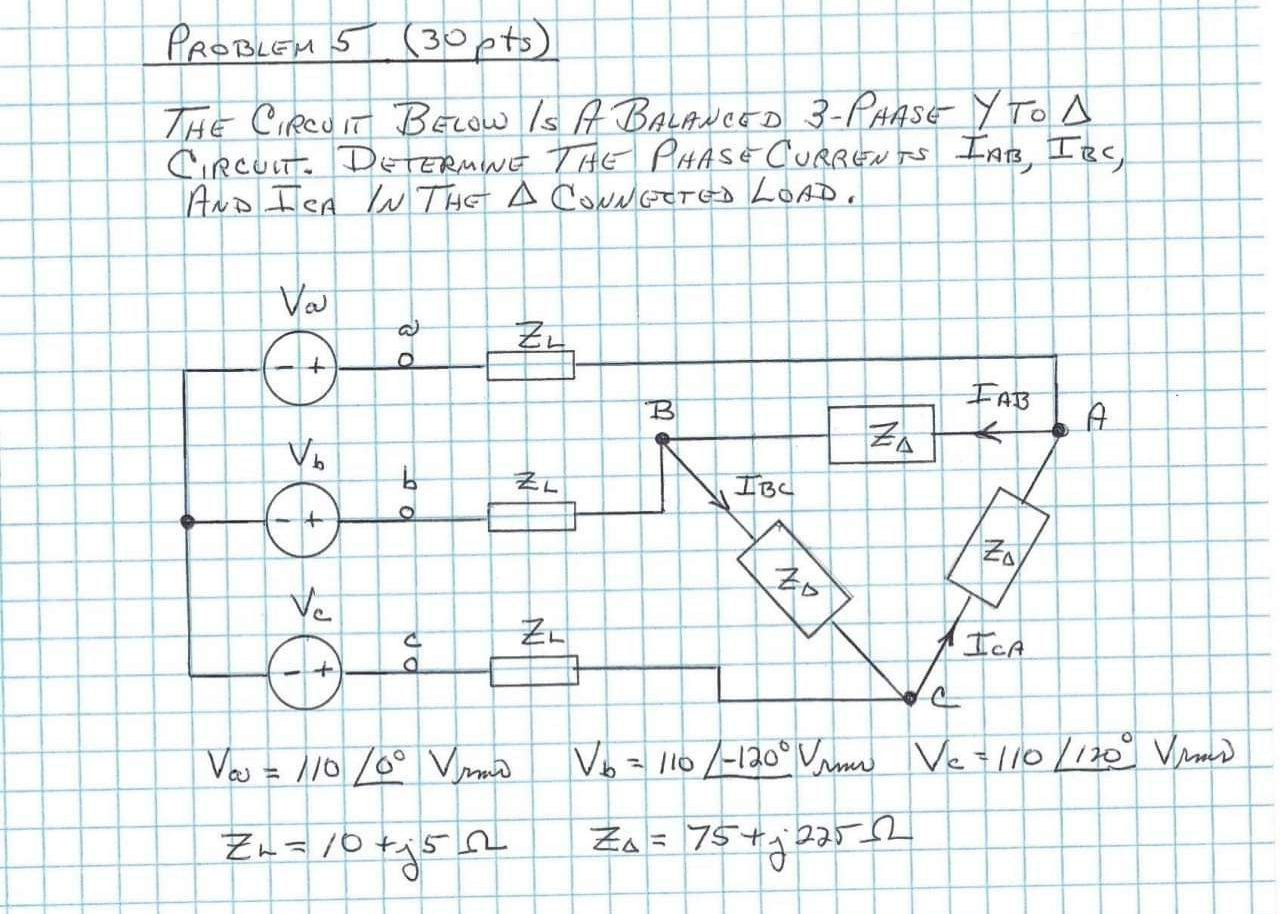 PROBLEM 5 (30 pts)
THE CIRCUIT BELOW IS A BALANCED 3-PHASE Y TO Δ
CIRCUIT. DETERMINE THE PHASE CURRENTS IAB, IBC,
AND ICA IN THE Δ CONNECTED LOAD.
Va
a
ZL
- +
B
IAB
A
ZΔ
Vb
b
ZL
IBC
- +
ZΔ
ZΔ
Vc
c
ZL
ICA
- +
C
Va = 110 /0° Vrms Vb = 110 /-120° Vrms Vc = 110 /120° Vrms
ZL = 10 + j5 Ω ZΔ = 75 + j225 Ω